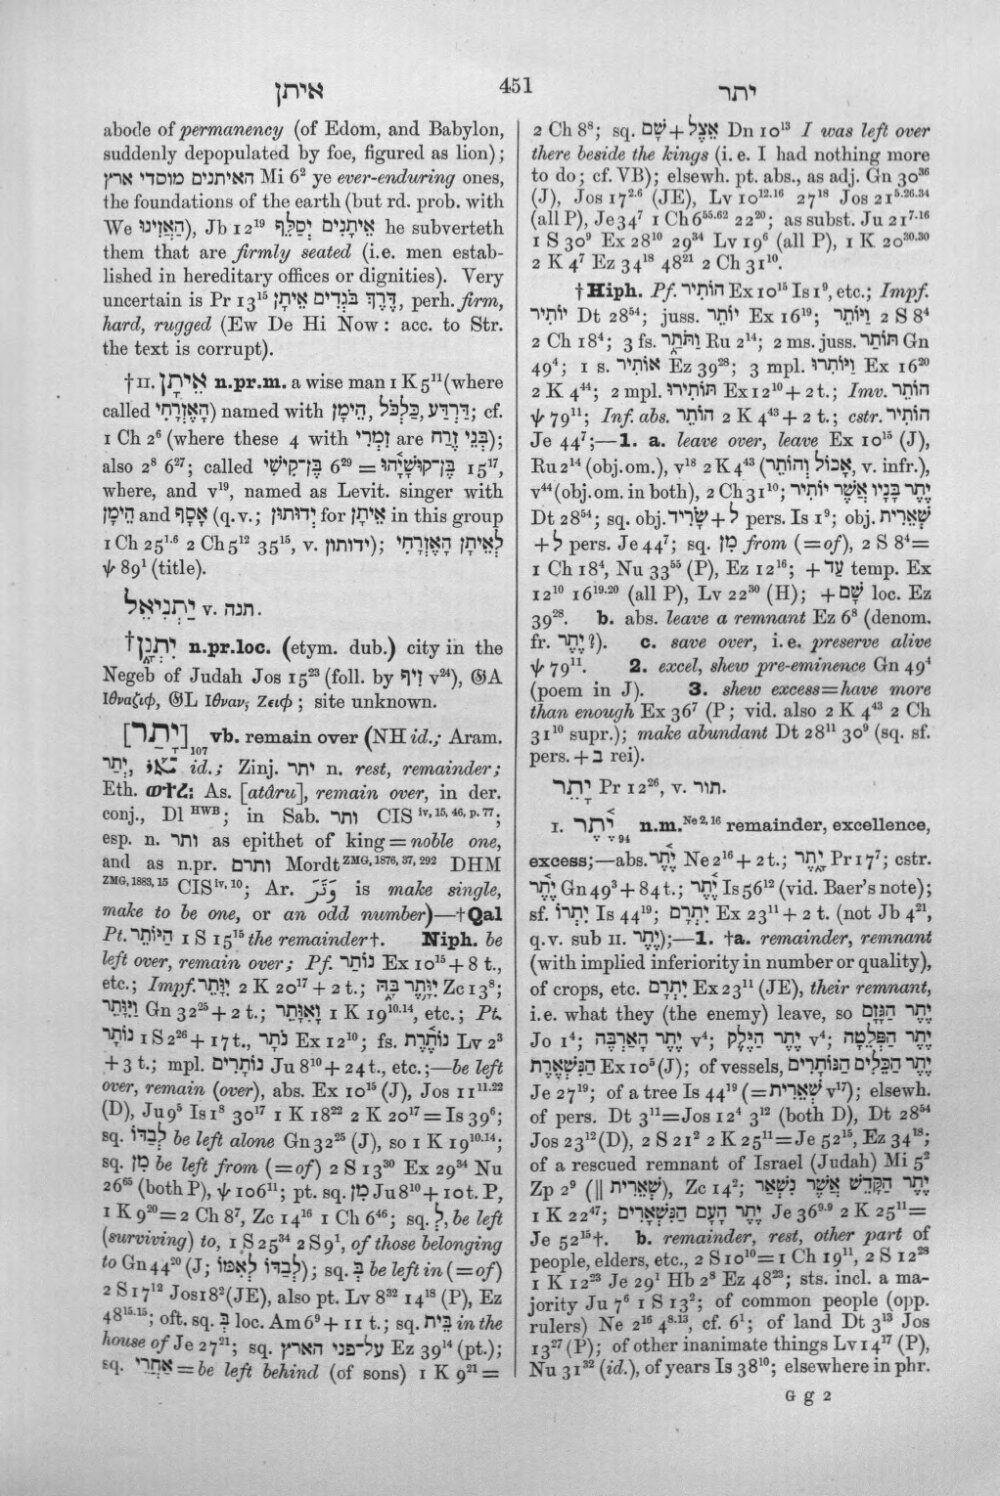 איתן
451
יתר
abode of permanency (of Edom, and Babylon,
suddenly depopulated by foe, figured as lion);
האיתנים מוסדי ארץ Mi 6² ye ever-enduring ones,
the foundations of the earth (but rd. prob. with
We הַאֲזִינוּ), Jb 12¹⁹ אֵיתָנִים יְסַלֵּף he subverteth
them that are firmly seated (i.e. men estab-
lished in hereditary offices or dignities). Very
uncertain is Pr 13¹⁵ דֶּרֶךְ בֹּגְדִים אֵיתָן, perh. firm,
hard, rugged (Ew De Hi Now: acc. to Str.
the text is corrupt).
†II. אֵיתָן n.pr.m. a wise man 1 K 5¹¹ (where
called הָאֶזְרָחִי) named with הֵימָן, כַּלְכֹּל, דַּרְדַּע; cf.
1 Ch 2⁶ (where these 4 with זִמְרִי are בְּנֵי זֶרַח);
also 2⁸ 6²⁷; called בֶּן־קִישִׁי 6²⁹ = בֶּן־קוּשָׁיָהוּ 15¹⁷,
where, and v¹⁹, named as Levit. singer with
הֵימָן and אָסָף (q.v.; יְדוּתוּן for אֵיתָן in this group
1 Ch 25¹·⁶ 2 Ch 5¹² 35¹⁵, v. ידותון); לְאֵיתָן הָאֶזְרָחִי
ψ 89¹ (title).
יַתְנִיאֵל v. תנה.
†יִתְנָן n.pr.loc. (etym. dub.) city in the
Negeb of Judah Jos 15²³ (foll. by זִיף v²⁴), 𝔊A
Ιθναζιφ, 𝔊L Ιθναν, Ζειφ; site unknown.
[יָתַר]₁₀₇ vb. remain over (NH id.; Aram.
יְתַר, ܝܺܬܰܪ id.; Zinj. יתר n. rest, remainder;
Eth. ወተረ: As. [atâru], remain over, in der.
conj., Dl HWB; in Sab. ותר CIS iv, 15, 46, p. 77;
esp. n. ותר as epithet of king = noble one,
and as n.pr. ותרם Mordt ZMG, 1876, 37, 292 DHM
ZMG, 1883, 15 CIS iv, 10; Ar. وَتَرَ is make single,
make to be one, or an odd number)—†Qal
Pt. הַיּוֹתֵר 1 S 15¹⁵ the remainder†. Niph. be
left over, remain over; Pf. נוֹתַר Ex 10¹⁵ + 8 t.,
etc.; Impf. יִוָּתֵר 2 K 20¹⁷ + 2 t.; יִוָּתֶר בָּהּ Zc 13⁸;
וַיִּוָּתֵר Gn 32²⁵ + 2 t.; וָאִוָּתֵר 1 K 19¹⁰·¹⁴, etc.; Pt.
נוֹתָר 1 S 2³⁶ + 17 t., נֹתָר Ex 12¹⁰; fs. נוֹתֶרֶת Lv 2³
+ 3 t.; mpl. נוֹתָרִים Ju 8¹⁰ + 24 t., etc.;—be left
over, remain (over), abs. Ex 10¹⁵ (J), Jos 11¹¹·²²
(D), Ju 9⁵ Is 1⁸ 30¹⁷ 1 K 18²² 2 K 20¹⁷ = Is 39⁶;
sq. לְבַדּוֹ be left alone Gn 32²⁵ (J), so 1 K 19¹⁰·¹⁴;
sq. מִן be left from (= of) 2 S 13³⁰ Ex 29³⁴ Nu
26⁶⁵ (both P), ψ 106¹¹; pt. sq. מִן Ju 8¹⁰ + 10 t. P,
1 K 9²⁰ = 2 Ch 8⁷, Zc 14¹⁶ 1 Ch 6⁴⁶; sq. לְ, be left
(surviving) to, 1 S 25³⁴ 2 S 9¹, of those belonging
to Gn 44²⁰ (J; לְבַדּוֹ לְאִמּוֹ); sq. בְּ be left in (= of)
2 S 17¹² Jos 18² (JE), also pt. Lv 8³² 14¹⁸ (P), Ez
48¹⁵·¹⁵; oft. sq. בְּ loc. Am 6⁹ + 11 t.; sq. בֵּית in the
house of Je 27²¹; sq. על־פני הארץ Ez 39¹⁴ (pt.);
sq. אַחֲרֵי = be left behind (of sons) 1 K 9²¹ =
2 Ch 8⁸; sq. אֵצֶל + שָׁם Dn 10¹³ I was left over
there beside the kings (i. e. I had nothing more
to do; cf. VB); elsewh. pt. abs., as adj. Gn 30³⁶
(J), Jos 17²·⁶ (JE), Lv 10¹²·¹⁶ 27¹⁸ Jos 21⁵·²⁶·³⁴
(all P), Je 34⁷ 1 Ch 6⁵⁵·⁶² 22²⁰; as subst. Ju 21⁷·¹⁶
1 S 30⁹ Ex 28¹⁰ 29³⁴ Lv 19⁶ (all P), 1 K 20³⁰·³⁰
2 K 4⁷ Ez 34¹⁸ 48²¹ 2 Ch 31¹⁰.
†Hiph. Pf. הוֹתִיר Ex 10¹⁵ Is 1⁹, etc.; Impf.
יוֹתִיר Dt 28⁵⁴; juss. יוֹתֵר Ex 16¹⁹; וַיּוֹתֵר 2 S 8⁴
2 Ch 18⁴; 3 fs. וַתֹּתַר Ru 2¹⁴; 2 ms. juss. תּוֹתַר Gn
49⁴; 1 s. אוֹתִיר Ez 39²⁸; 3 mpl. וַיּוֹתִרוּ Ex 16²⁰
2 K 4⁴⁴; 2 mpl. תּוֹתִירוּ Ex 12¹⁰ + 2 t.; Imv. הוֹתֵר
ψ 79¹¹; Inf. abs. הוֹתֵר 2 K 4⁴³ + 2 t.; cstr. הוֹתִיר
Je 44⁷;—1. a. leave over, leave Ex 10¹⁵ (J),
Ru 2¹⁴ (obj. om.), v¹⁸ 2 K 4⁴³ (אָכוֹל וְהוֹתֵר, v. infr.),
v⁴⁴ (obj. om. in both), 2 Ch 31¹⁰; יֶתֶר בָּנָיו אֲשֶׁר יוֹתִיר
Dt 28⁵⁴; sq. obj. שָׂרִיד + ל pers. Is 1⁹; obj. שְׁאֵרִית
+ ל pers. Je 44⁷; sq. מִן from (= of), 2 S 8⁴ =
1 Ch 18⁴, Nu 33⁵⁵ (P), Ez 12¹⁶; + עַד temp. Ex
12¹⁰ 16¹⁹·²⁰ (all P), Lv 22³⁰ (H); + שָׁם loc. Ez
39²⁸. b. abs. leave a remnant Ez 6⁸ (denom.
fr. יֶתֶר?). c. save over, i. e. preserve alive
ψ 79¹¹. 2. excel, shew pre-eminence Gn 49⁴
(poem in J). 3. shew excess = have more
than enough Ex 36⁷ (P; vid. also 2 K 4⁴³ 2 Ch
31¹⁰ supr.); make abundant Dt 28¹¹ 30⁹ (sq. sf.
pers. + ב rei).
יָתֵר Pr 12²⁶, v. תור.
I. יֶתֶר₉₄ n.m. Ne 2, 16 remainder, excellence,
excess;—abs. יֶתֶר Ne 2¹⁶ + 2 t.; יָתֶר Pr 17⁷; cstr.
יֶתֶר Gn 49³ + 84 t.; יֶתֶר Is 56¹² (vid. Baer's note);
sf. יִתְרוֹ Is 44¹⁹; יִתְרָם Ex 23¹¹ + 2 t. (not Jb 4²¹,
q.v. sub II. יֶתֶר);—1. †a. remainder, remnant
(with implied inferiority in number or quality),
of crops, etc. יִתְרָם Ex 23¹¹ (JE), their remnant,
i.e. what they (the enemy) leave, so יֶתֶר הַגָּזָם
Jo 1⁴; יֶתֶר הָאַרְבֶּה v⁴; יֶתֶר הַיֶּלֶק v⁴; יֶתֶר הַפְּלֵטָה
הַנִּשְׁאֶרֶת Ex 10⁵ (J); of vessels, יֶתֶר הַכֵּלִים הַנּוֹתָרִים
Je 27¹⁹; of a tree Is 44¹⁹ (= שְׁאֵרִית v¹⁷); elsewh.
of pers. Dt 3¹¹ = Jos 12⁴ 3¹² (both D), Dt 28⁵⁴
Jos 23¹² (D), 2 S 21² 2 K 25¹¹ = Je 52¹⁵, Ez 34¹⁸;
of a rescued remnant of Israel (Judah) Mi 5²
Zp 2⁹ (‖ שְׁאֵרִית), Zc 14²; יֶתֶר הַקָּדֵשׁ אֲשֶׁר נִשְׁאַר
1 K 22⁴⁷; יֶתֶר הָעָם הַנִּשְׁאָרִים Je 36⁹·⁹ 2 K 25¹¹ =
Je 52¹⁵†. b. remainder, rest, other part of
people, elders, etc., 2 S 10¹⁰ = 1 Ch 19¹¹, 2 S 12²⁸
1 K 12²³ Je 29¹ Hb 2⁸ Ez 48²³; sts. incl. a ma-
jority Ju 7⁶ 1 S 13²; of common people (opp.
rulers) Ne 2¹⁶ 4⁸·¹³, cf. 6¹; of land Dt 3¹³ Jos
13²⁷ (P); of other inanimate things Lv 14¹⁷ (P),
Nu 31³² (id.), of years Is 38¹⁰; elsewhere in phr.
G g 2